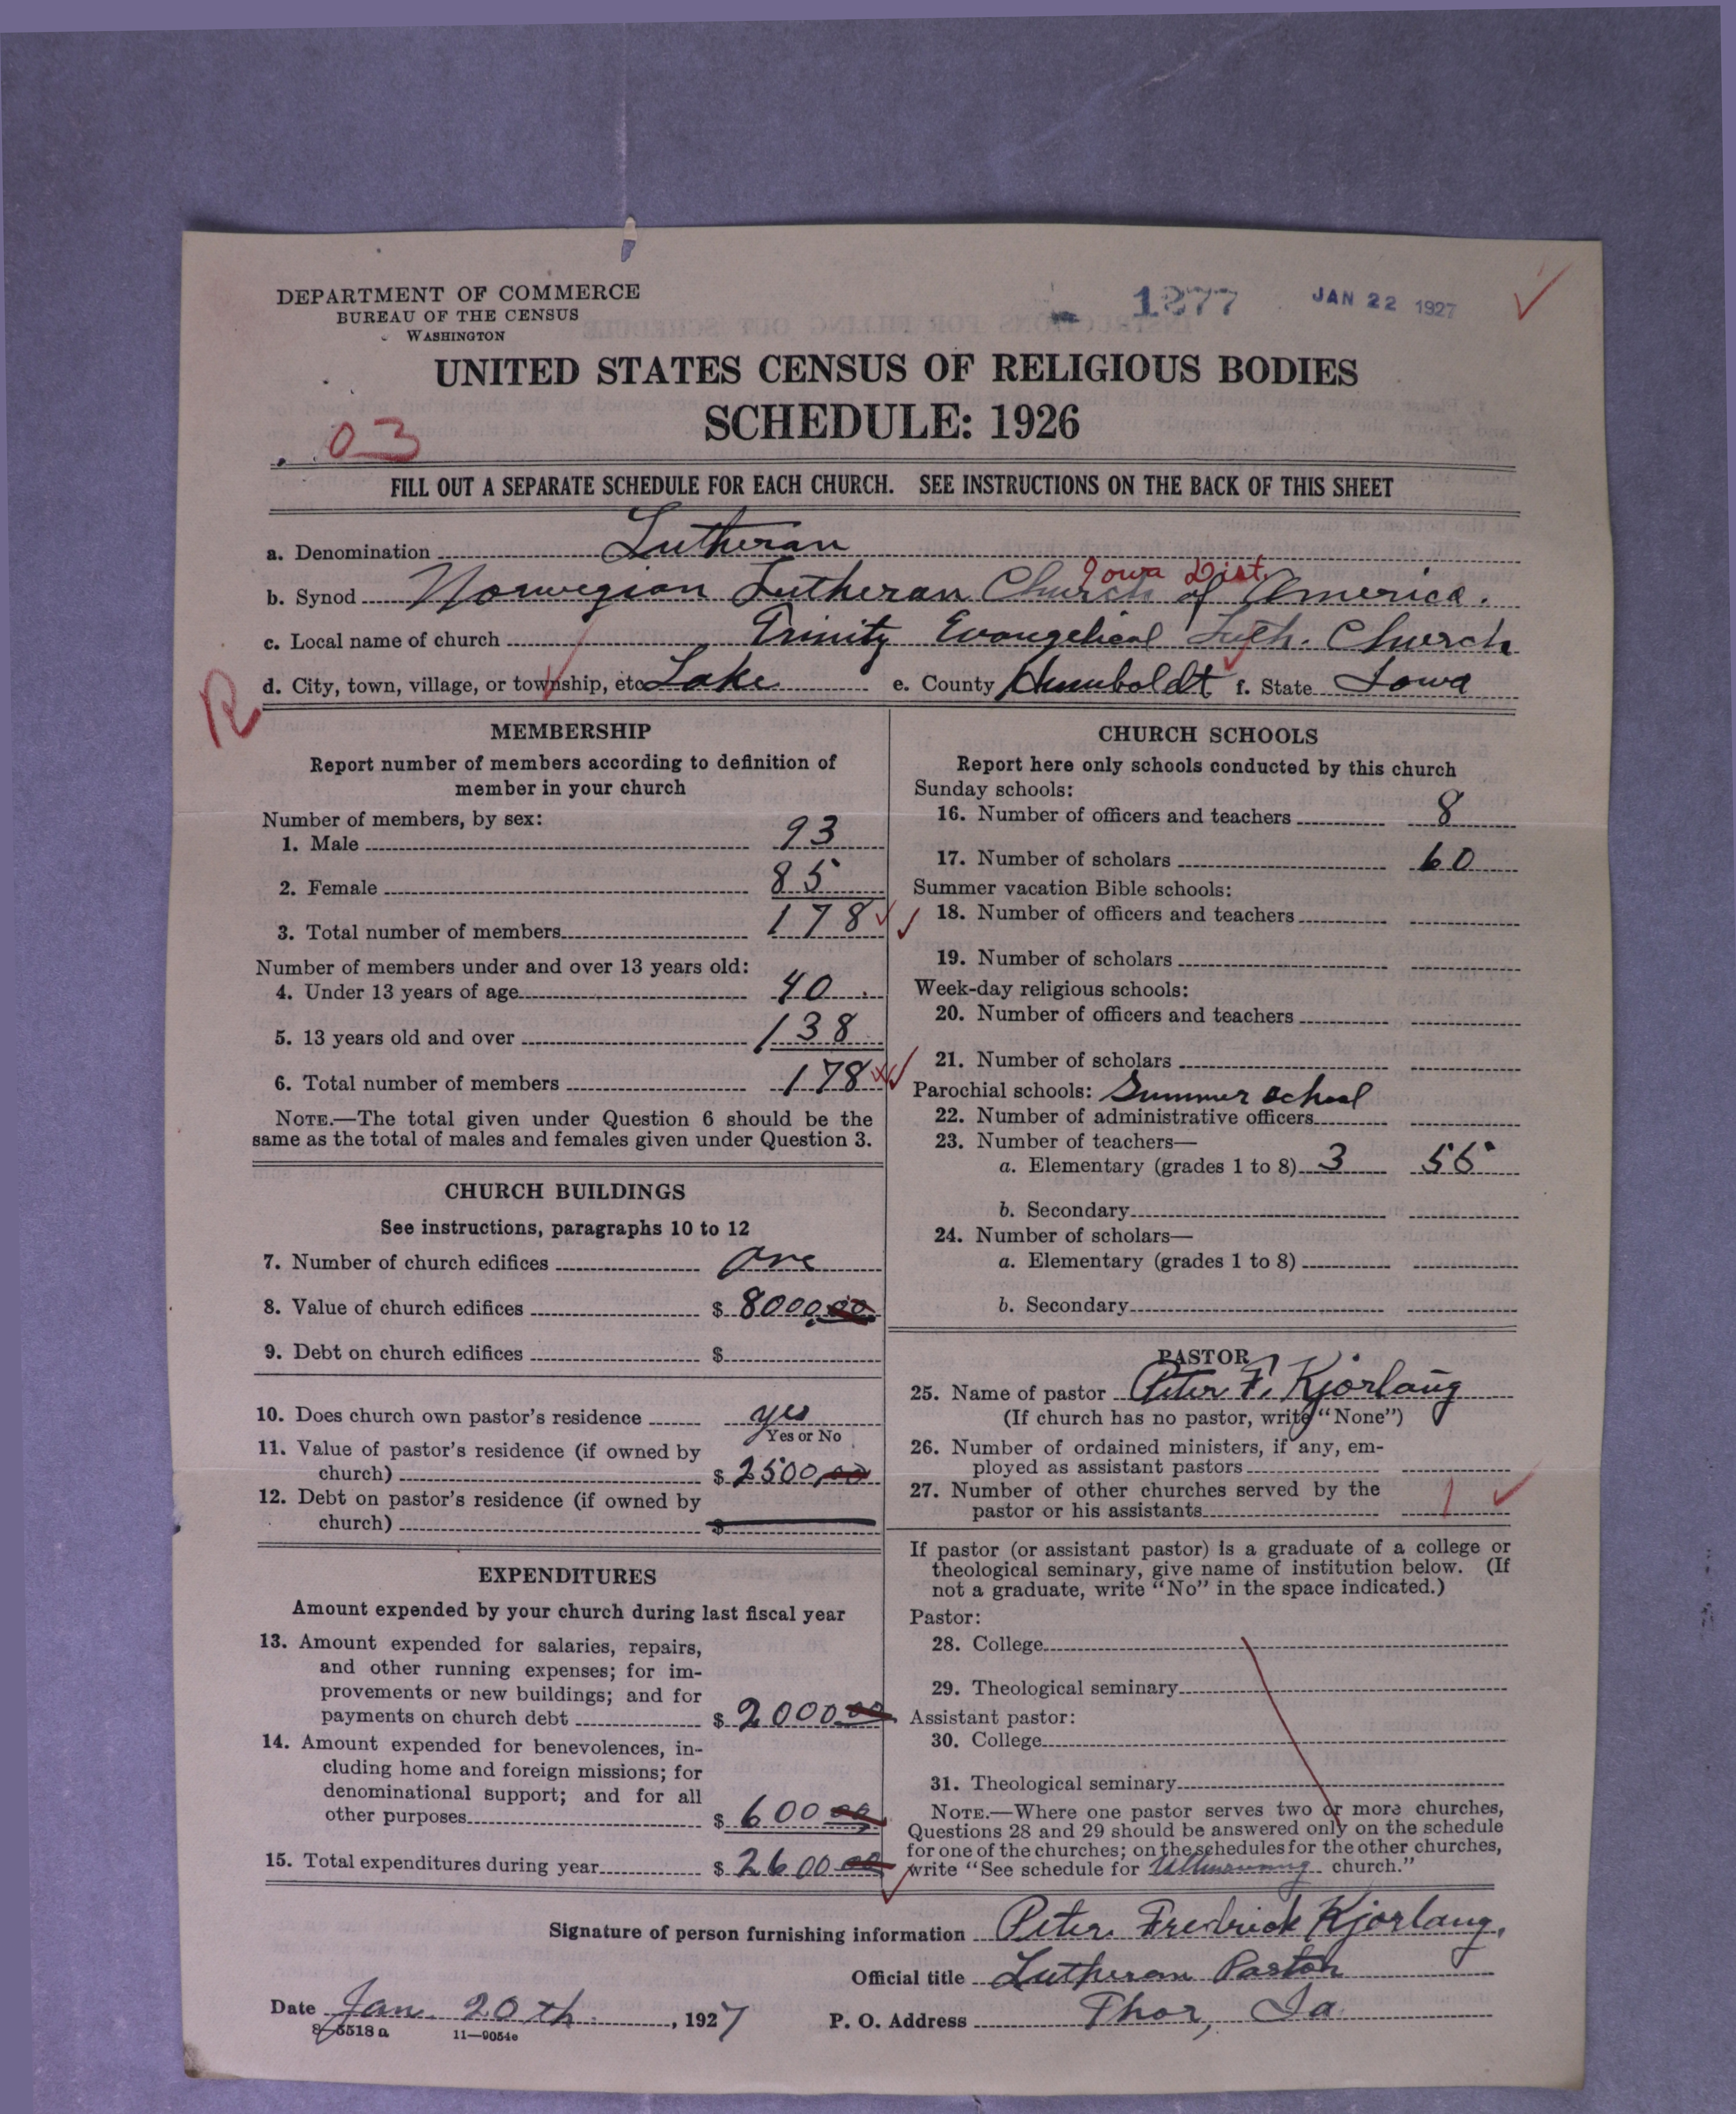 DEPARTMENT OF COMMERCE
BUREAU OF THE CENSUS
WASHINGTON
1277 JAN 22 1927
UNITED STATES CENSUS OF RELIGIOUS BODIES
SCHEDULE: 1926
03
FILL OUT A SEPARATE SCHEDULE FOR EACH CHURCH. SEE INSTRUCTIONS ON THE BACK OF THIS SHEET
a. Denomination Lutheran
Iowa Dist.
b. Synod Norwegian Lutheran Church of America.
c. Local name of church Trinity Evangelical Luth. Church
d. City, town, village, or township, etc Lake e. County Humboldt f. State Iowa
R
MEMBERSHIP
Report number of members according to definition of
member in your church
Number of members, by sex:
1. Male 93
2. Female 85
3. Total number of members 178
Number of members under and over 13 years old:
4. Under 13 years of age 40
5. 13 years old and over 138
6. Total number of members 178
NOTE.—The total given under Question 6 should be the
same as the total of males and females given under Question 3.
CHURCH BUILDINGS
See instructions, paragraphs 10 to 12
7. Number of church edifices one
8. Value of church edifices $ 8000.00
9. Debt on church edifices $
10. Does church own pastor's residence yes
Yes or No
11. Value of pastor's residence (if owned by
church) $ 2500.00
12. Debt on pastor's residence (if owned by
church) $
EXPENDITURES
Amount expended by your church during last fiscal year
13. Amount expended for salaries, repairs,
and other running expenses; for im-
provements or new buildings; and for
payments on church debt $ 2000 00
14. Amount expended for benevolences, in-
cluding home and foreign missions; for
denominational support; and for all
other purposes $ 600 00
15. Total expenditures during year $ 2600 00
CHURCH SCHOOLS
Report here only schools conducted by this church
Sunday schools:
16. Number of officers and teachers 8
17. Number of scholars 60
Summer vacation Bible schools:
18. Number of officers and teachers
19. Number of scholars
Week-day religious schools:
20. Number of officers and teachers
21. Number of scholars
Parochial schools: Summer school
22. Number of administrative officers
23. Number of teachers—
a. Elementary (grades 1 to 8) 3 55
b. Secondary
24. Number of scholars—
a. Elementary (grades 1 to 8)
b. Secondary
PASTOR
25. Name of pastor Peter F. Kjorlaug
(If church has no pastor, write "None")
26. Number of ordained ministers, if any, em-
ployed as assistant pastors
27. Number of other churches served by the
pastor or his assistants 1
If pastor (or assistant pastor) is a graduate of a college or
theological seminary, give name of institution below. (If
not a graduate, write "No" in the space indicated.)
Pastor:
28. College
29. Theological seminary
Assistant pastor:
30. College
31. Theological seminary
NOTE.—Where one pastor serves two or more churches,
Questions 28 and 29 should be answered only on the schedule
for one of the churches; on the schedules for the other churches,
write "See schedule for church."
Signature of person furnishing information Peter Fredrick Kjorlaug.
Official title Lutheran Pastor
Date Jan. 20th, 1927 P. O. Address Thor, Ia
8-5518 a 11—9054e